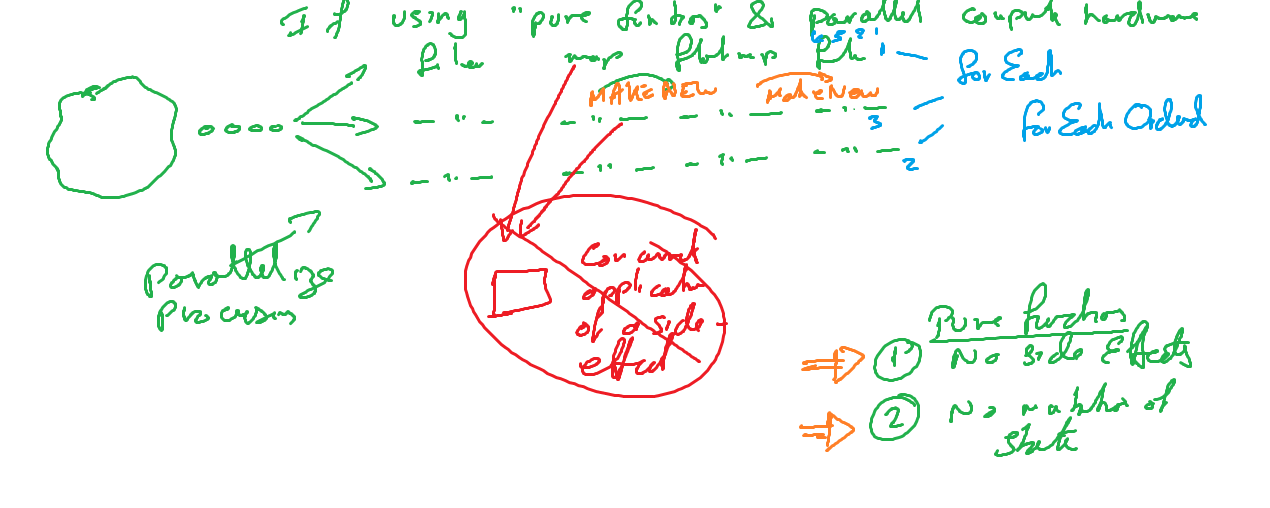 If using "pure functios" & parallel compute hardware
filter map flatmap
1
forEach
MAKE NEW Make New
3
forEach Ordered
2
Parallelize
Processing
Concurrent
application
of a side -
effect
Pure functions
1 No side Effects
2 No mutation of
state